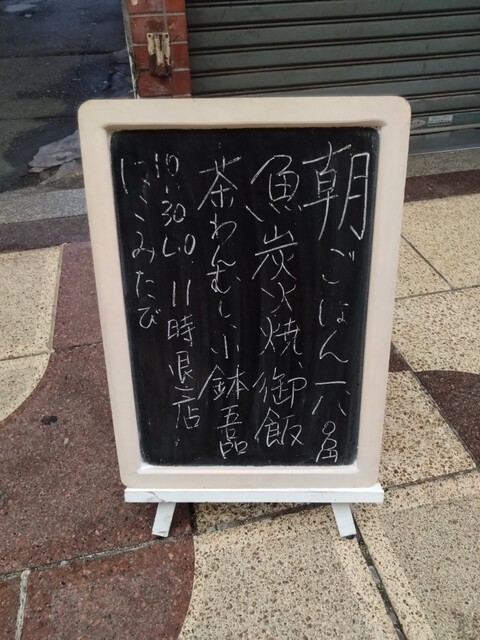 朝ごはん一八〇円
魚炭火焼、御飯
茶わんむし小鉢五品
10:30 L.O 11時退店
にこみたび